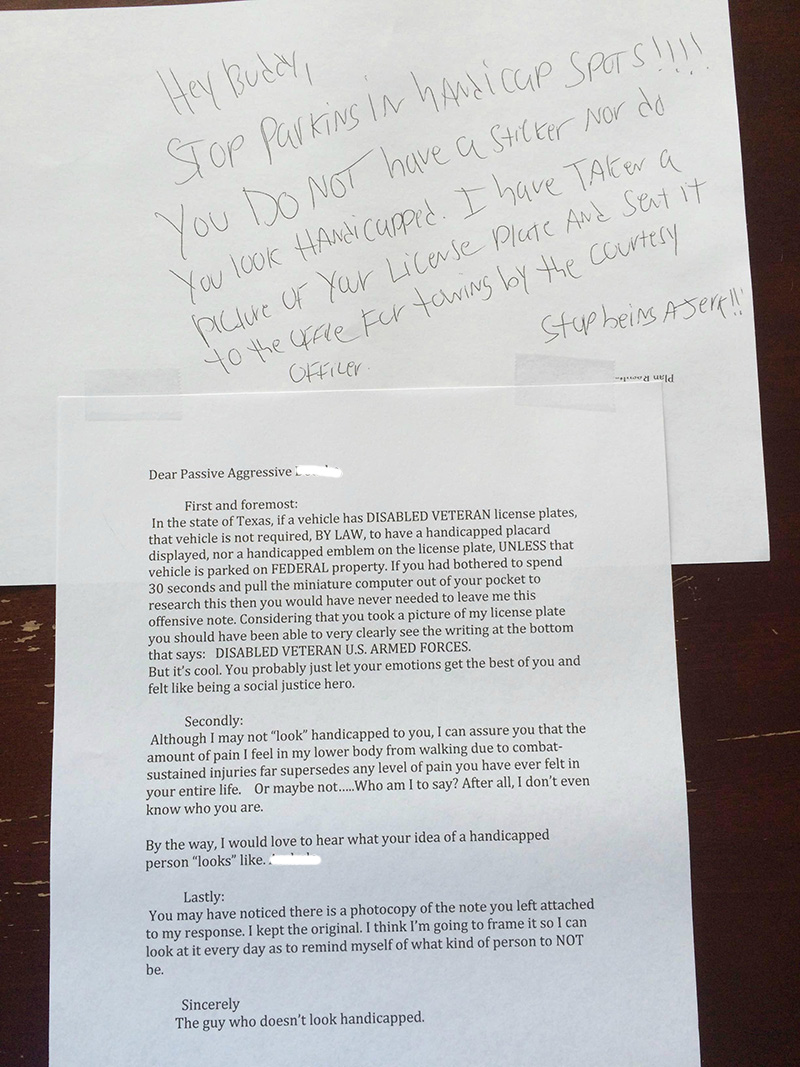 Hey Buddy,
STOP Parking in hANdicap SPOTS!!!!
You DO NOT have a Sticker Nor do
You look HANdicapped. I have TAKen a
picture of Your License Plate And Sent it
to the office For towing by the courtesy
officer.
Stop being A Jerk!!
Plan
Dear Passive Aggressive
First and foremost:
In the state of Texas, if a vehicle has DISABLED VETERAN license plates,
that vehicle is not required, BY LAW, to have a handicapped placard
displayed, nor a handicapped emblem on the license plate, UNLESS that
vehicle is parked on FEDERAL property. If you had bothered to spend
30 seconds and pull the miniature computer out of your pocket to
research this then you would have never needed to leave me this
offensive note. Considering that you took a picture of my license plate
you should have been able to very clearly see the writing at the bottom
that says: DISABLED VETERAN U.S. ARMED FORCES.
But it's cool. You probably just let your emotions get the best of you and
felt like being a social justice hero.
Secondly:
Although I may not "look" handicapped to you, I can assure you that the
amount of pain I feel in my lower body from walking due to combat-
sustained injuries far supersedes any level of pain you have ever felt in
your entire life. Or maybe not.....Who am I to say? After all, I don't even
know who you are.
By the way, I would love to hear what your idea of a handicapped
person "looks" like.
Lastly:
You may have noticed there is a photocopy of the note you left attached
to my response. I kept the original. I think I'm going to frame it so I can
look at it every day as to remind myself of what kind of person to NOT
be.
Sincerely
The guy who doesn't look handicapped.